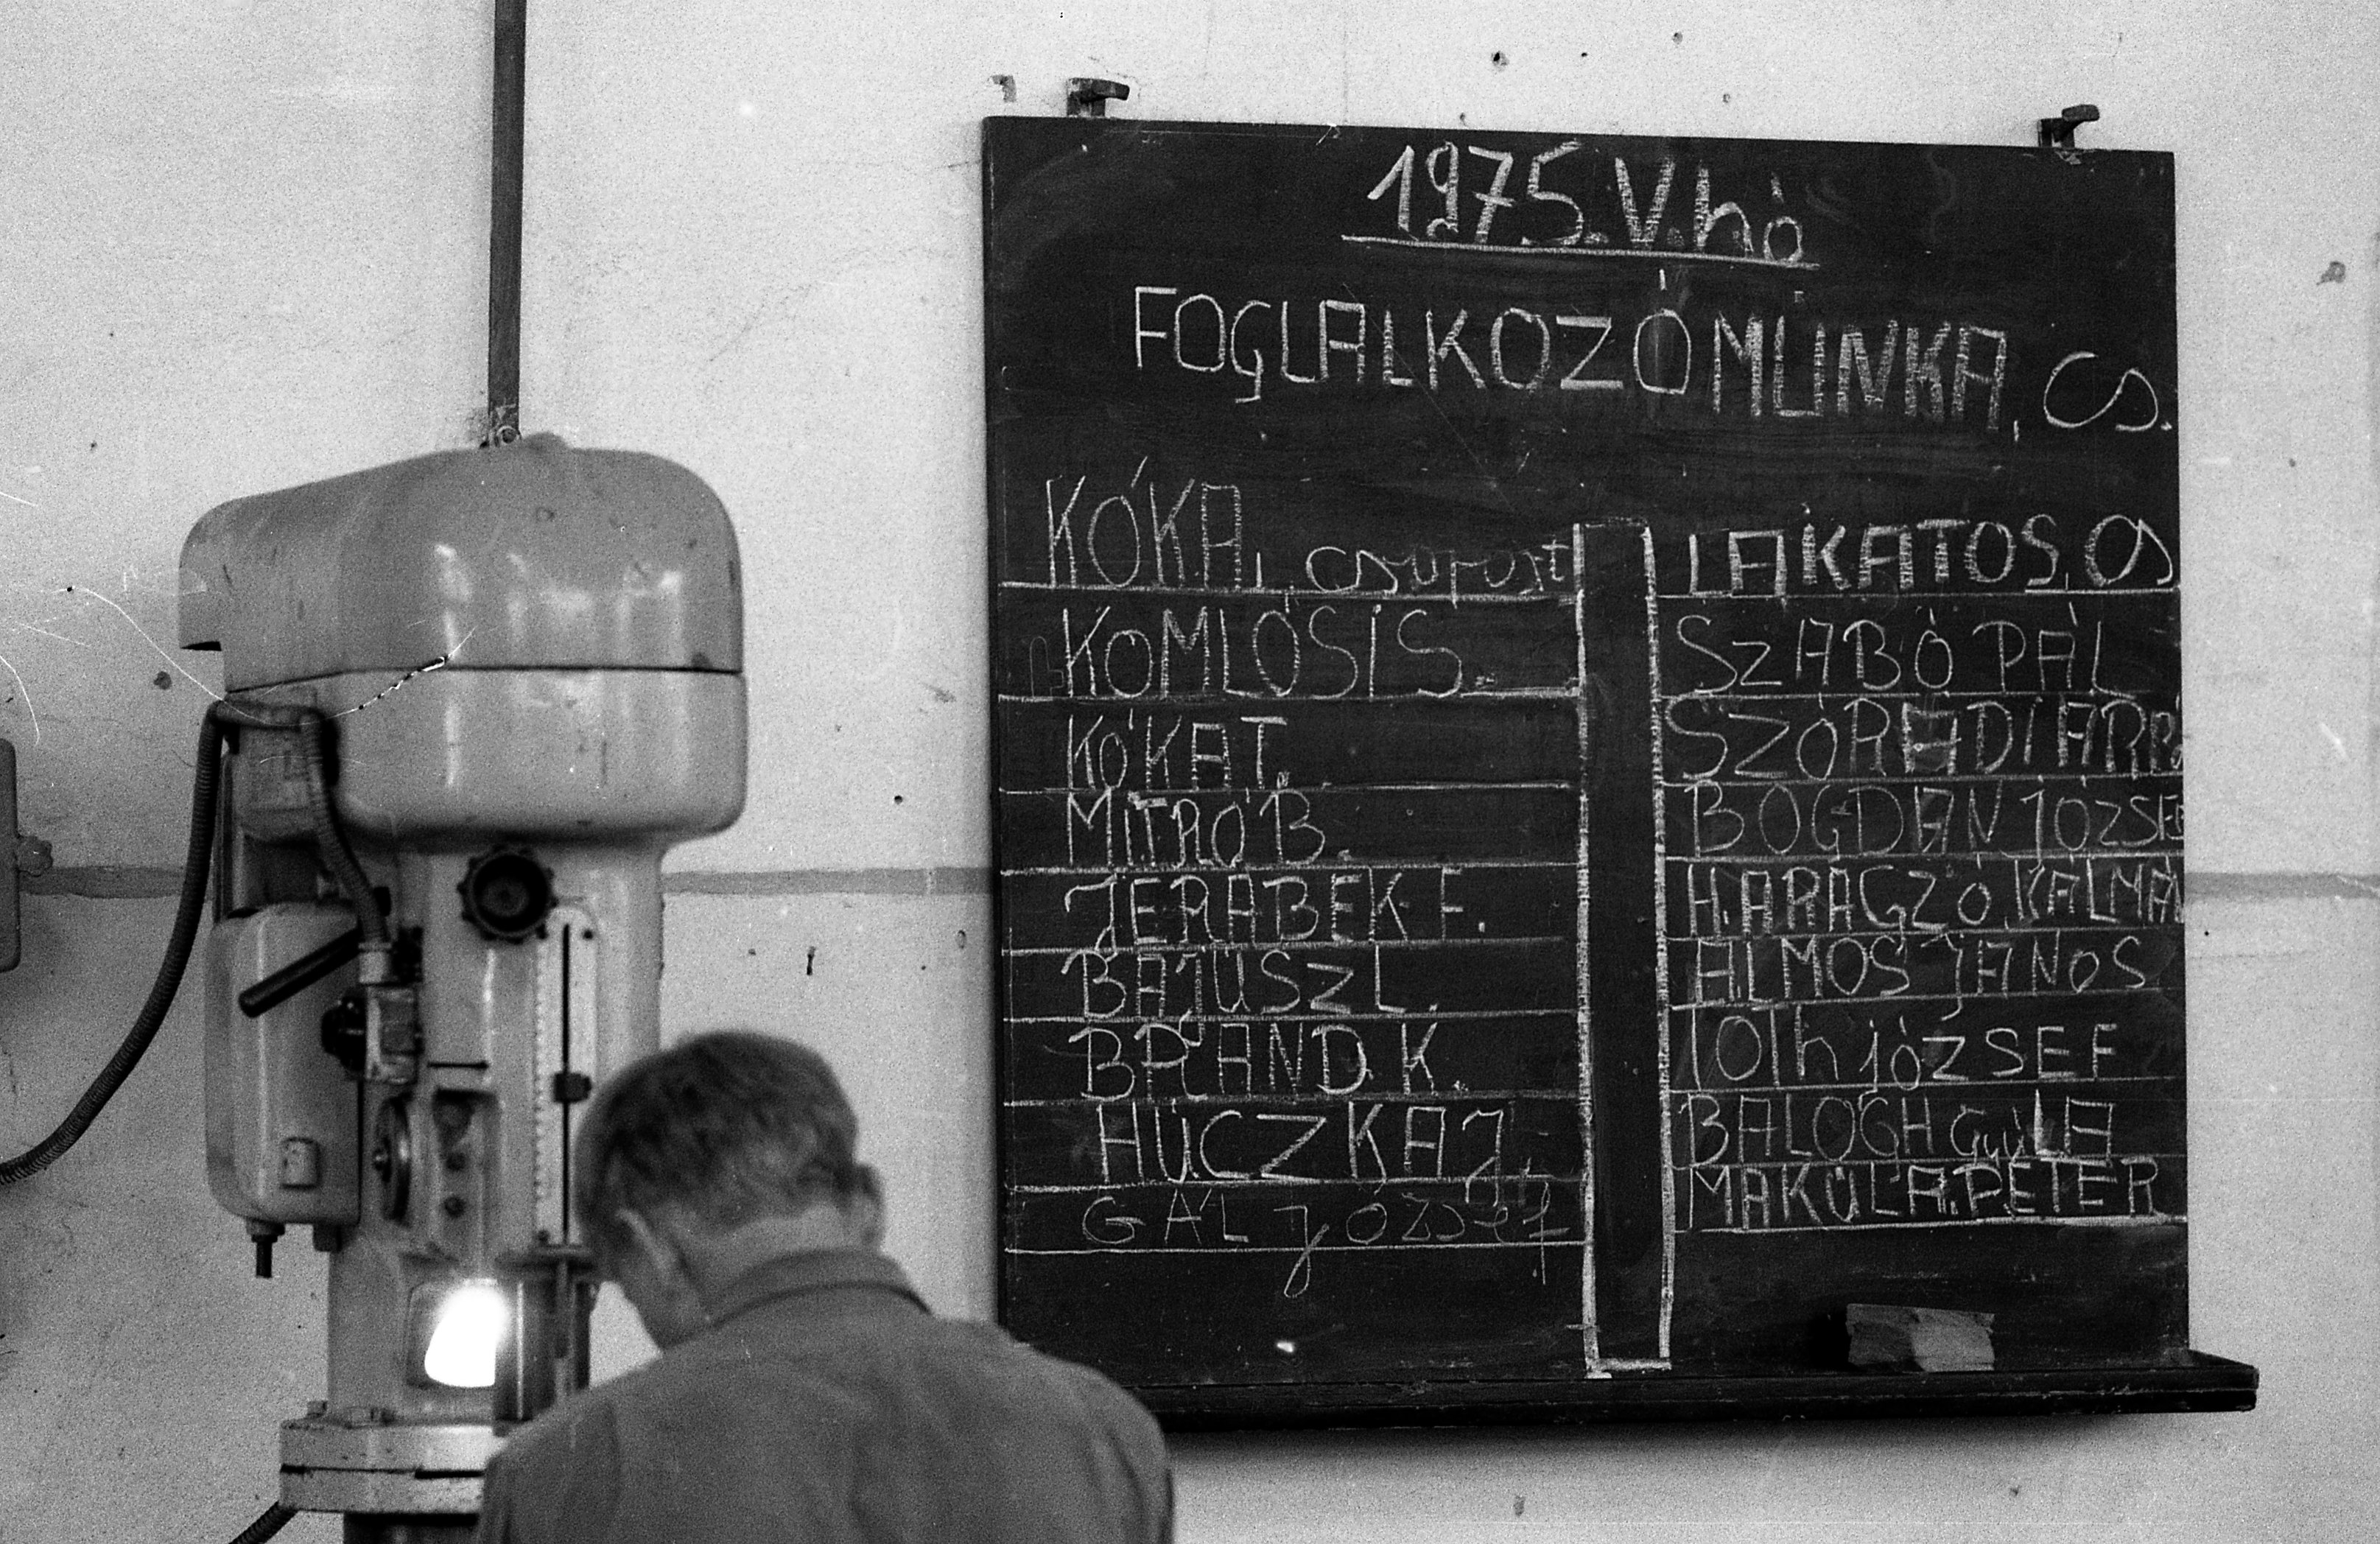 1975. V. hó
FOGLALKOZÓ MUNKA, CS.
KÓKA, csoport
KOMLÓSI S.
KÓKA T.
MITRÓ B.
JERABEK F.
BAJUSZ L.
BRAND K.
HUCZKA J.
GÁL József
LAKATOS, CS
SZABÓ PÁL
SZÓRÁDI ÁRPÁ
BOGDÁN JÓZSEF
HARAGZÓ KÁLMÁ
ÁLMOS JÁNOS
TOTh JÓZSEF
BALOGH GyuLA
MAKULA PÉTER